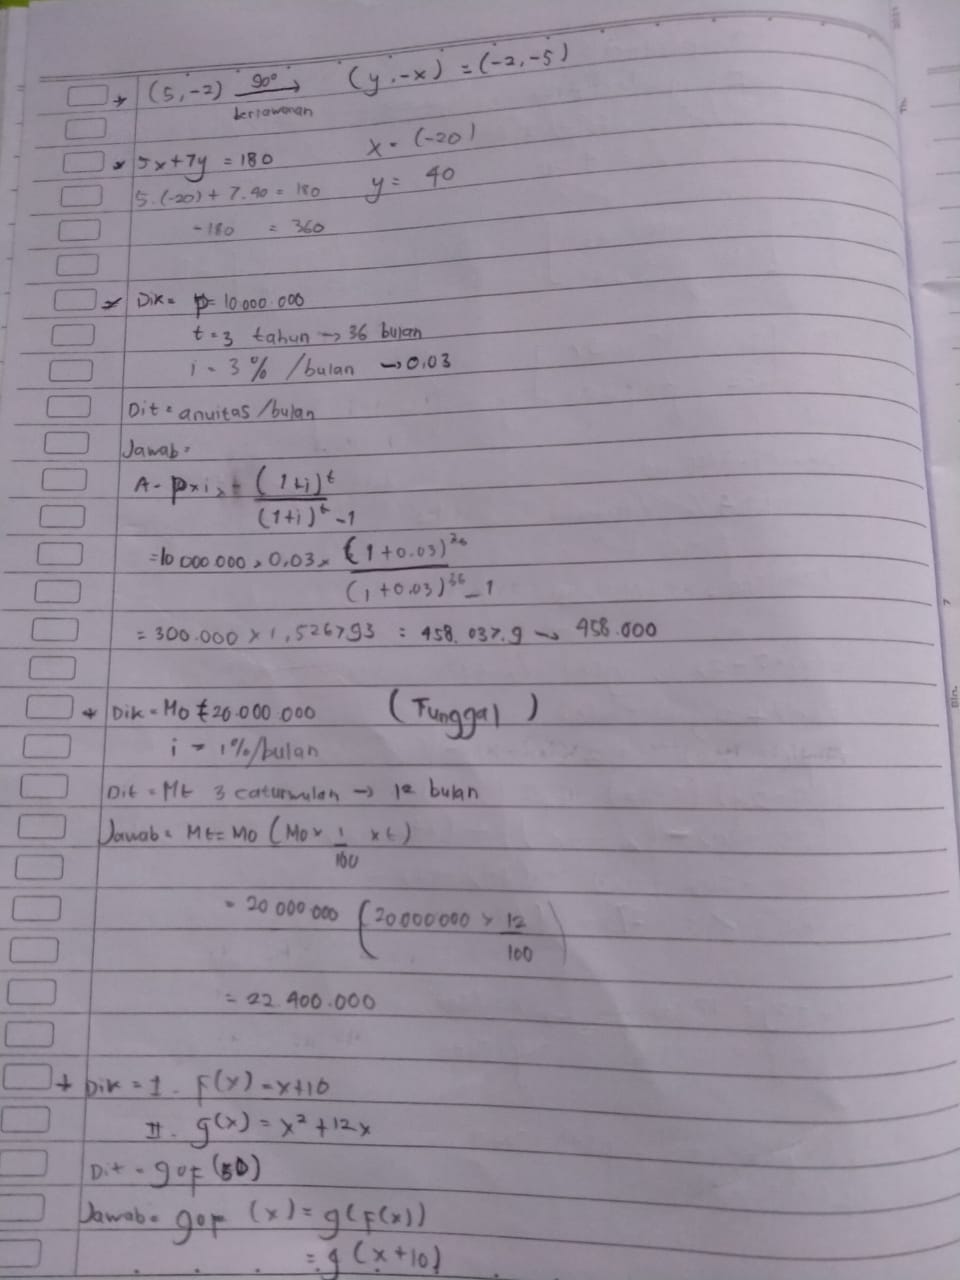 (5, -2) 90° → (y, -x) = (-2, -5)
berlawanan
* 5x + 7y = 180   x = (-20)
5.(-20) + 7.40 = 180   y = 40
-180 = 360
* Dik = p = 10.000.000
t = 3 tahun → 36 bulan
i = 3 % /bulan → 0,03
Dit = anuitas /bulan
Jawab =
A = p x i x (1+i)^t / (1+i)^t - 1
= 10.000.000 x 0,03 x (1 + 0.03)^36 / (1 + 0.03)^36 - 1
= 300.000 x 1,526793 = 458.037,9 → 458.000
* Dik = Mo = 20.000.000   (Tunggal)
i = 1%/bulan
Dit = Mt 3 caturwulan → 12 bulan
Jawab = Mt = Mo (Mo x i/100 x t)
= 20 000 000 (20.000.000 x 12/100)
= 22.400.000
+ Dik = I. F(x) = x+10
II. g(x) = x² + 12x
Dit = gof (50)
Jawab = gof (x) = g(F(x))
= g (x+10)